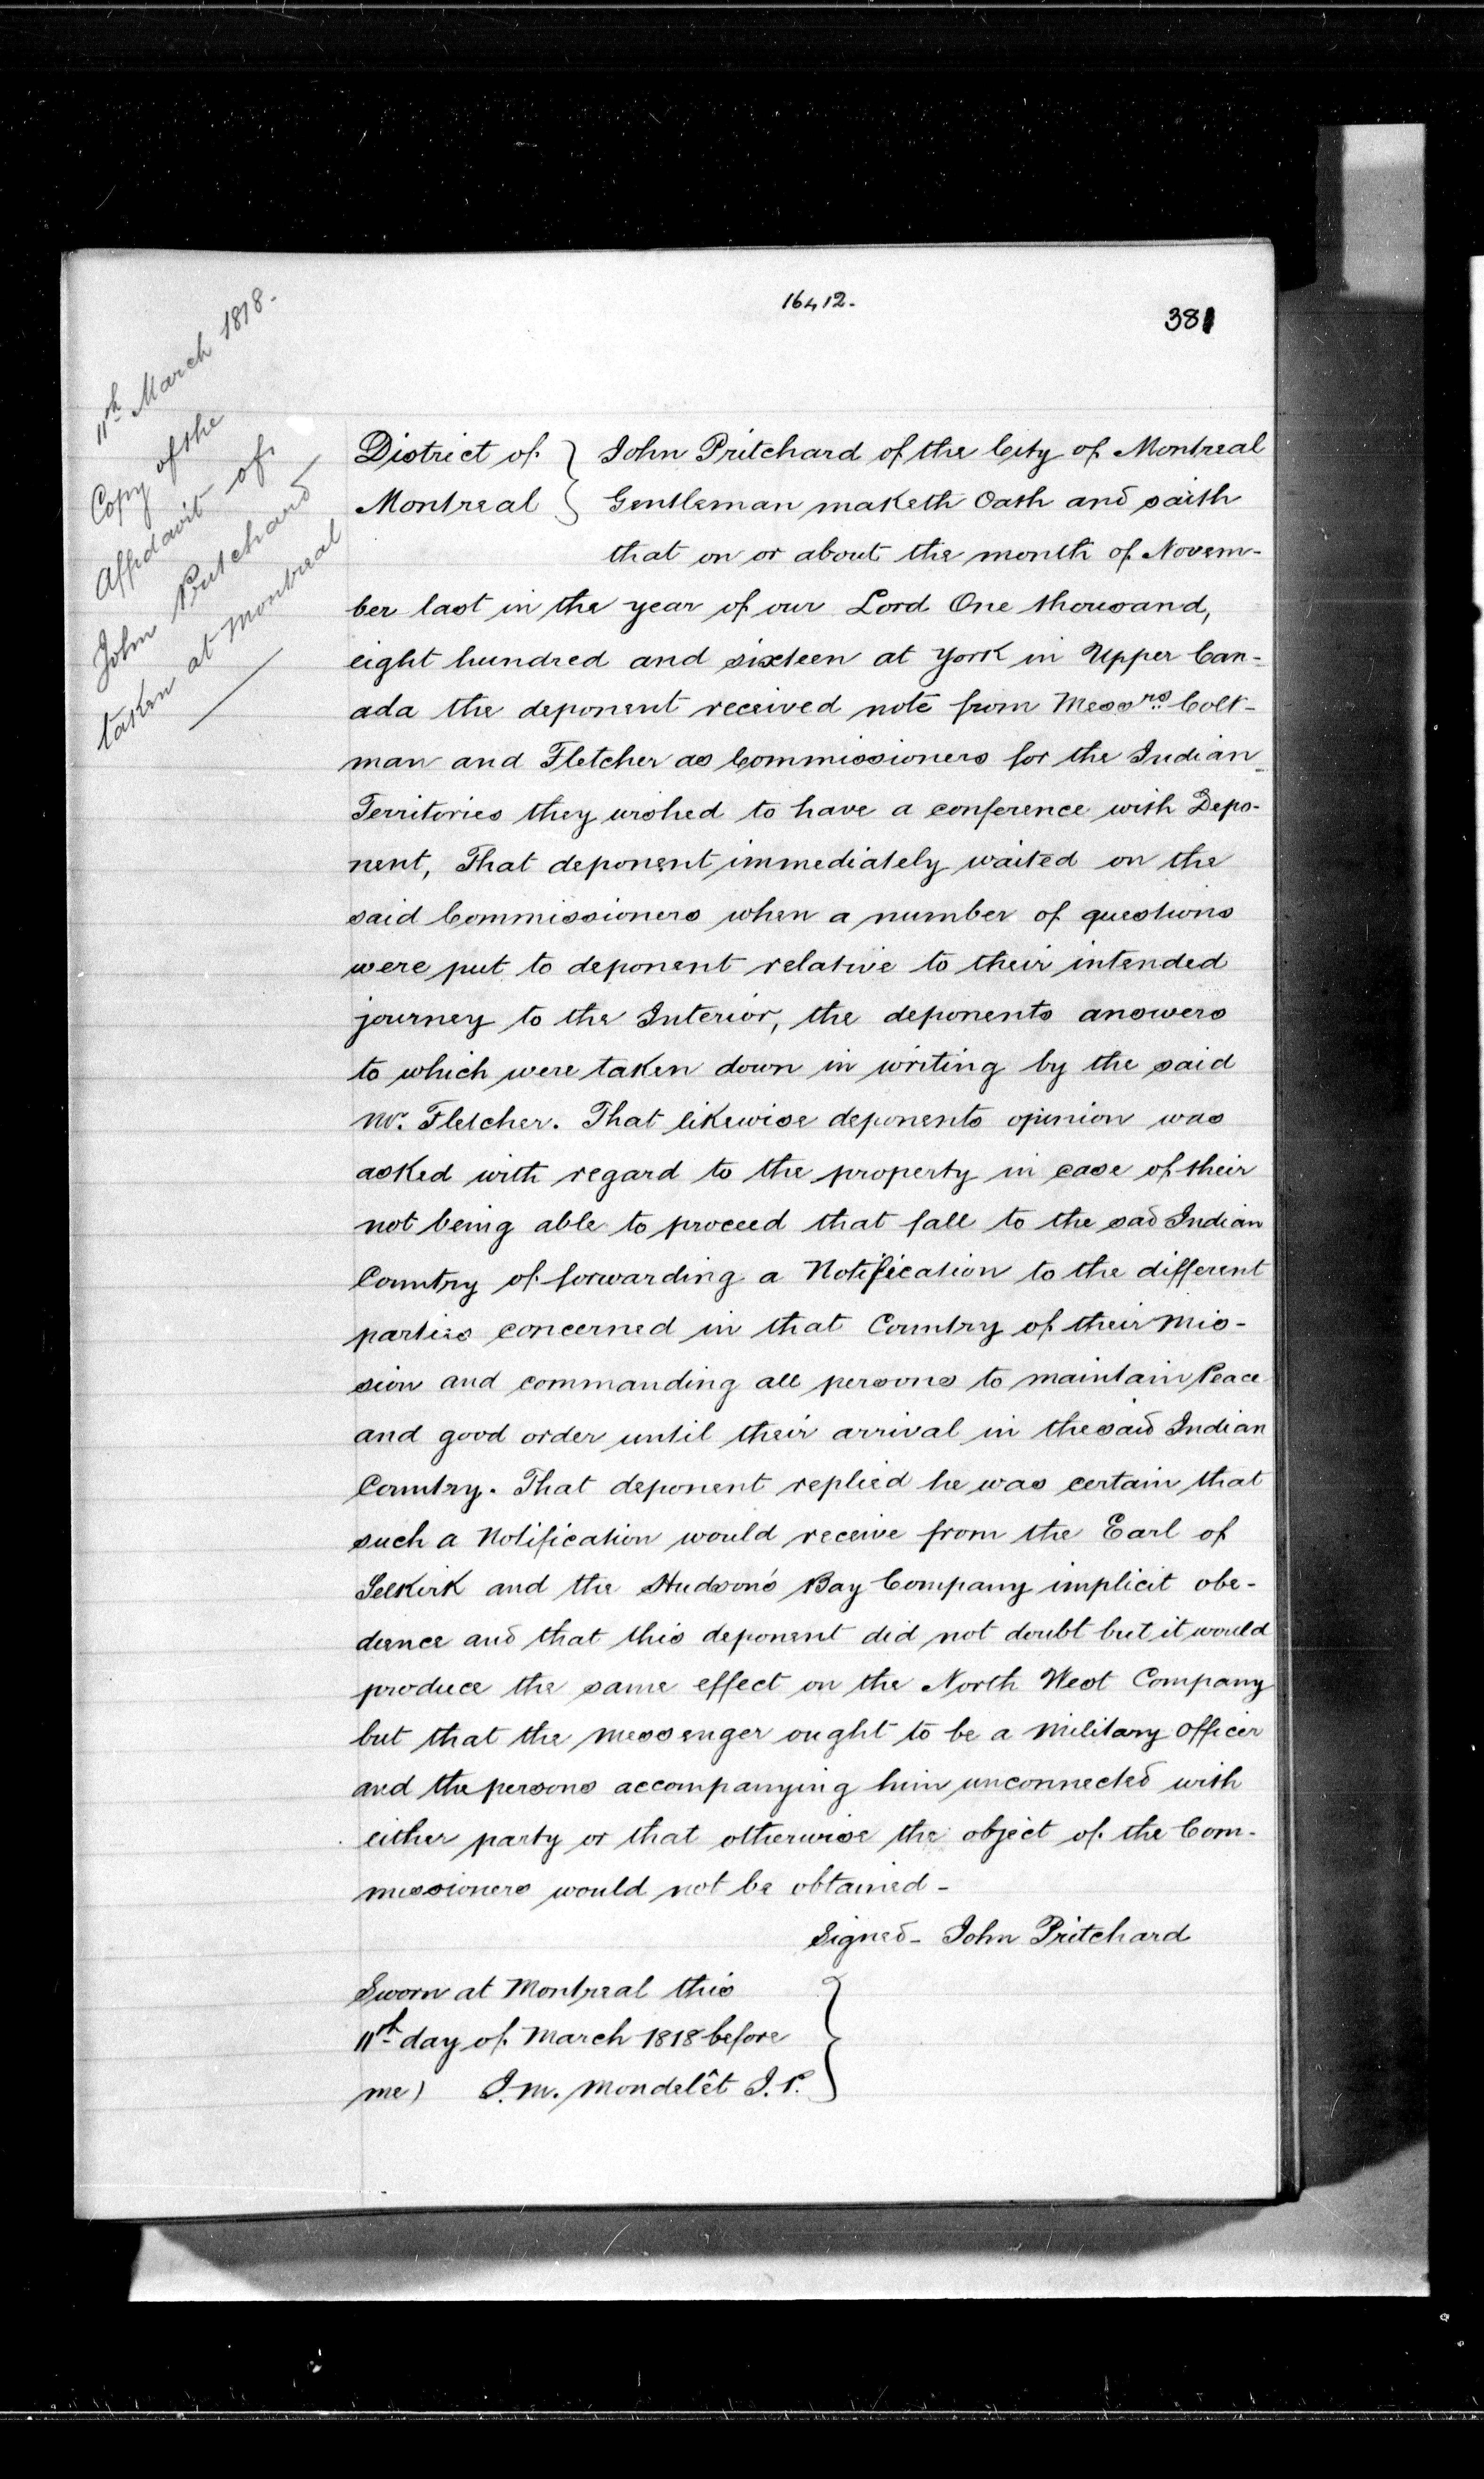 16412.
381
11th March 1818.
Copy of the
Affidavit of
John Pritchard
taken at Montreal
District of } John Pritchard of the City of Montreal
Montreal } Gentleman maketh Oath and saith
that on or about the month of Novem-
ber last in the year of our Lord One thousand,
eight hundred and sixteen at York in Upper Can-
ada the deponent received note from Messrs. Colt-
man and Fletcher as Commissioners for the Indian
Territories they wished to have a conference with Depo-
nent, That deponent immediately waited on the
said Commissioners when a number of questions
were put to deponent relative to their intended
journey to the Interior, the deponents answers
to which were taken down in writing by the said
Mr. Fletcher. That likewise deponents opinion was
asked with regard to the property in case of their
not being able to proceed that fall to the sad Indian
Country of forwarding a Notification to the different
parties concerned in that Country of their Mis-
sion and commanding all persons to maintain Peace
and good order until their arrival in the said Indian
Country. That deponent replied he was certain that
such a Notification would receive from the Earl of
Selkirk and the Hudson's Bay Company implicit obe-
dience and that this deponent did not doubt but it would
produce the same effect on the North West Company
but that the Messenger ought to be a Military Officer
and the persons accompanying him unconnected with
either party or that otherwise the object of the Com-
missioners would not be obtained -
Signed - John Pritchard
Sworn at Montreal this
11th day of March 1818 before
me) J. M. Mondelêt J. P. }